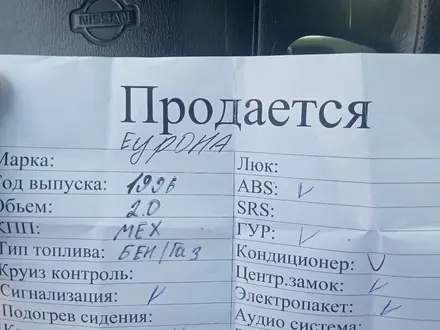 NISSAN
Продается
ЕуРОНА
Марка:
Год выпуска: 1996
Объем: 2.0
КПП: МЕХ
Тип топлива: БЕН/Газ
Круиз контроль:
Сигнализация: V
Подогрев сидения:
Люк:
ABS: V
SRS:
ГУР: V
Кондиционер: V
Центр.замок: V
Электропакет: V
Аудио система: